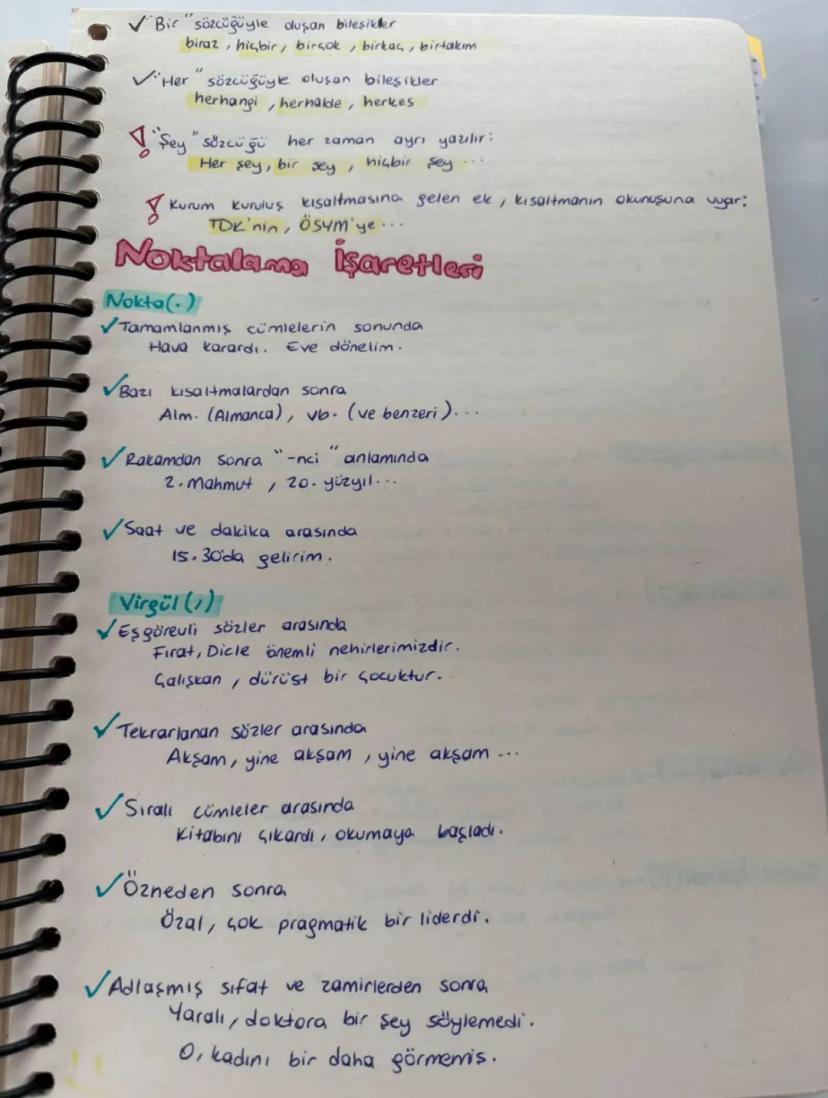 ✓ "Bir" sözcüğüyle oluşan bileşikler
biraz, hiçbir, birçok, birkaç, birtakım
✓ "Her" sözcüğüyle oluşan bileşikler
herhangi, herhalde, herkes
! "Şey" sözcüğü her zaman ayrı yazılır:
Her şey, bir şey, hiçbir şey...
! Kurum kuruluş kısaltmasına gelen ek, kısaltmanın okunuşuna uyar:
TDK'nin, ÖSYM'ye...
Noktalama İşaretleri
Nokta(.)
✓ Tamamlanmış cümlelerin sonunda
Hava karardı. Eve dönelim.
✓ Bazı kısaltmalardan sonra
Alm. (Almanca), vb. (ve benzeri)...
✓ Rakamdan sonra "-nci" anlamında
2. Mahmut, 20. yüzyıl...
✓ Saat ve dakika arasında
15.30'da gelirim.
Virgül(,)
✓ Eşgörevli sözler arasında
Fırat, Dicle önemli nehirlerimizdir.
Çalışkan, dürüst bir çocuktur.
✓ Tekrarlanan sözler arasında
Akşam, yine akşam, yine akşam...
✓ Sıralı cümleler arasında
Kitabını çıkardı, okumaya başladı.
✓ Özneden sonra
Özal, çok pragmatik bir liderdi.
✓ Adlaşmış sıfat ve zamirlerden sonra
Yaralı, doktora bir şey söylemedi.
O, kadını bir daha görmemiş.